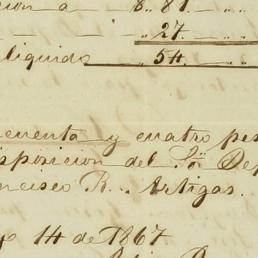 cion a 8.. 81 .. ..
.. 27. .. ..
liquido .. 54. .. ..
cuenta y cuatro pes
isposicion del Sõr De
ncisco R... Artigas.
o 14 de 1867